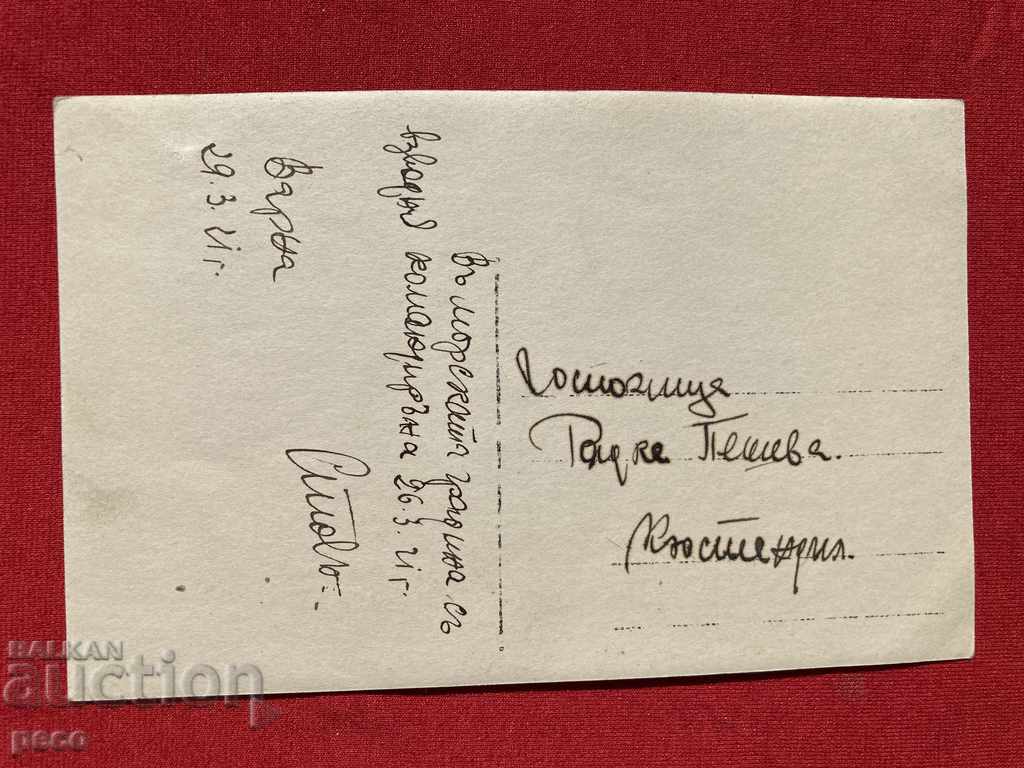 Въ морската градина съ
взводния командиръ на 26.3.41 г.
Варна
29.3.41 г.
Госпожица
Радка Пешева.
Кюстендил.
BALKAN
auction
peco